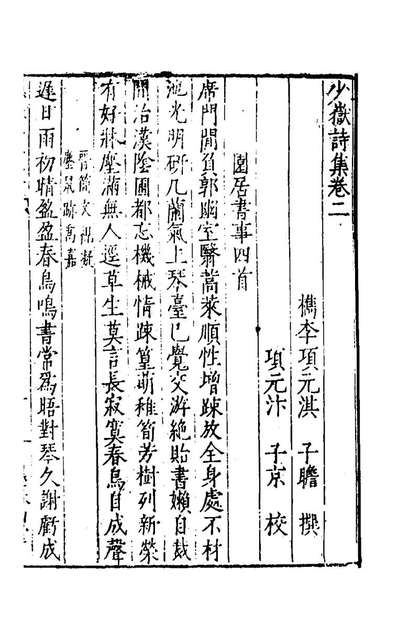 少嶽詩集卷二
檇李項元淇 子瞻 撰
項元汴 子京 校
園居書事四首
席門閒負郭幽室翳蒿萊順性增疎放全身處不材
池光明研几蘭氣上琴臺已覺交游絶貽書嬾自裁
開治漢陰圃都忘機械情疎篁萌稚筍芳樹列新榮
有好牀塵滿無人逕草生莫言長寂寞春鳥自成聲
晉簡文牀凝
塵鼠跡為嘉
遲日雨初晴盈盈春鳥鳴書常爲晤對琴久謝虧成